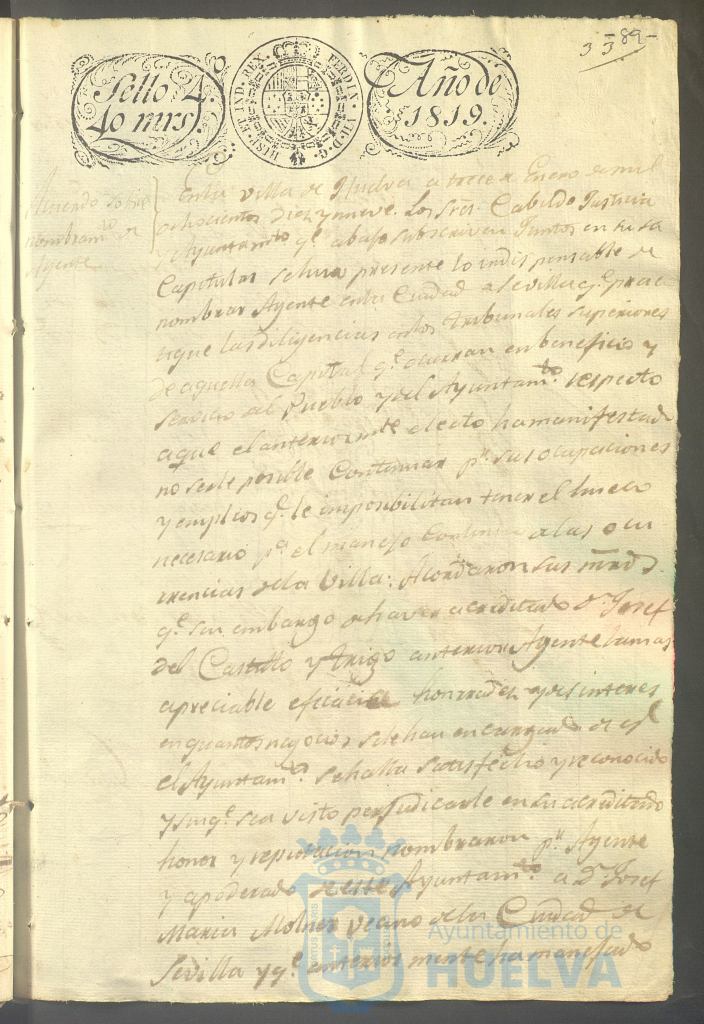 -89-
33
Sello 4.
40 mrs.
HISP. ET IND. REX. FERDIN. VII. D. G.
Año de
1819.
Acuerdo sobre
nombram.to de
Agente
En la villa de Huelva a trece de Enero de mil
ochocientos diez y nueve. Los Sres. Cabildo Justicia
y Ayuntam.to q.e abajo subscriven Juntos en su Sa
Capitular se hizo presente lo indispensable de
nombrar Agente en la Ciudad de Sevilla q.e prac
tique las diligencias en los tribunales superiores
de aquella Capital q.e ocurran en beneficio y
servicio del Pueblo y del Ayuntam.to respecto
a que el anteriorm.te electo ha manifestado
no serle posible Continuar p.r sus ocupaciones
y empleos q.e le imposibilitan tener el hueco
necesario p.a el manejo Continuo de las ocu
rrencias de la Villa: Acordaron sus mrds.
q.e sin embargo de haver acreditado D.n Josef
del Castillo y Trigo anterior Agente la mas
apreciable eficacia honradez y desinteres
en quantos negocios se le han encargado de q.e
el Ayuntam.to se halla satisfecho y reconocido
y sin q.e sea visto perjudicarle en su acreditado
honor y reputacion nombraron p.r Agente
y apoderado de este Ayuntam.to a D.n Josef
Maria Molner vecino de la Ciudad de
Sevilla y q.e anteriormente ha manejado
Ayuntamiento de
HUELVA